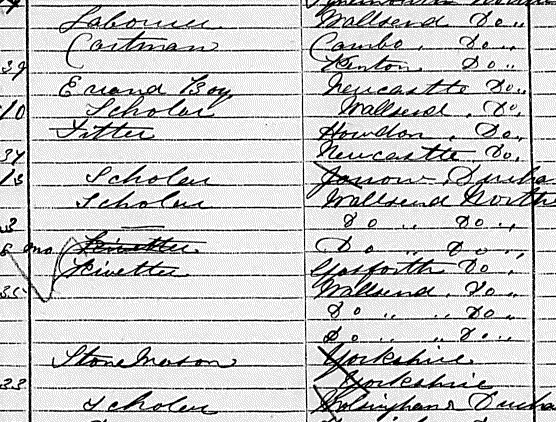 Labourer Wallsend Do
Cartman Cambo, Do
39 Kenton Do
Errand Boy Newcastle Do
10 Scholar Wallsend, Do
Fitter Howdon, Do
34 Newcastle Do
13 Scholar Jarrow Durha
Scholar Wallsend North
3 — Do " Do
8 mo Rivetter Do " Do
Rivetter Gosforth Do
35 Wallsend, Do
Do " " Do
Do " " Do
Stone Mason Yorkshire
33 Yorkshire
Scholar Wolsingham Durha